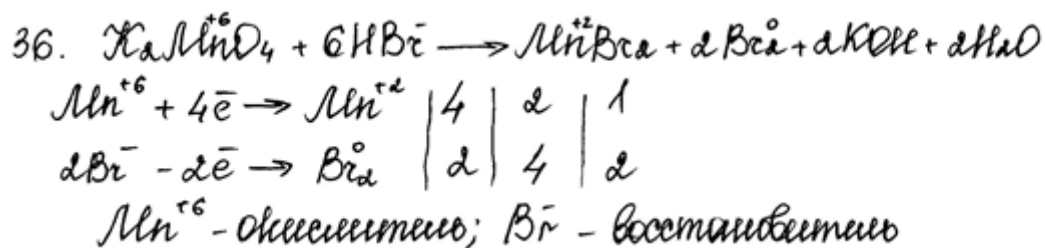 36. K₂Mn⁺⁶O₄ + 6HBr⁻ → Mn⁺²Br₂ + 2Br₂⁰ + 2KOH + 2H₂O
Mn⁺⁶ + 4ē → Mn⁺² | 4 | 2 | 1
2Br⁻ - 2ē → Br₂⁰ | 2 | 4 | 2
Mn⁺⁶ - окислитель; Br⁻ - восстановитель